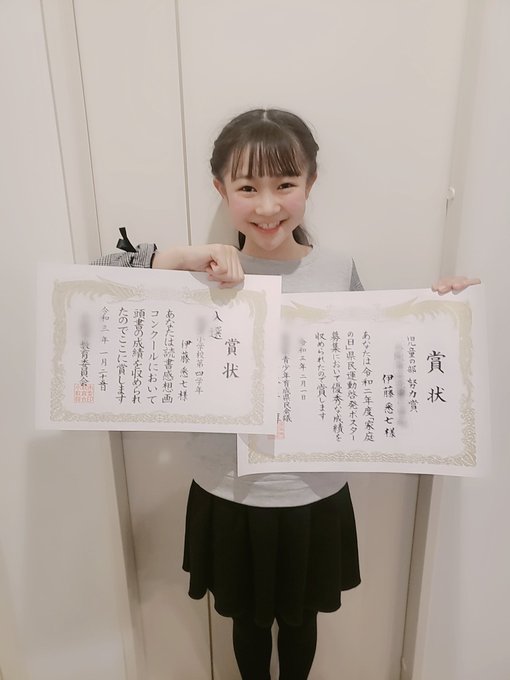 入選
賞状
小学校第四学年
伊藤悉七様
あなたは読書感想画
コンクールにおいて
頭書の成績を収められ
たのでここに賞します
令和三年一月二十一日
教育委員会
賞状
児童の部 努力賞
伊藤悉七様
あなたは令和二年度「家庭
の日」県民運動啓発ポスター
募集において優秀な成績を
収められたので賞します
令和三年二月一日
青少年育成県民会議